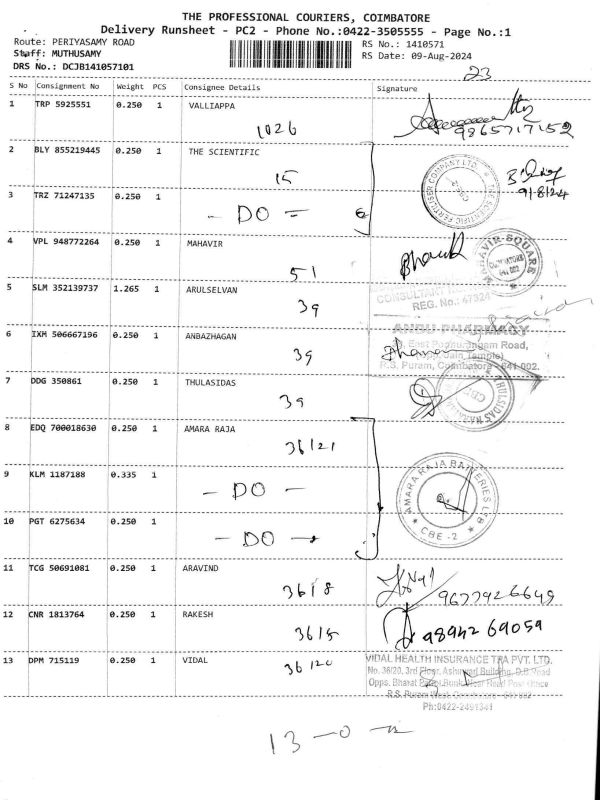 THE PROFESSIONAL COURIERS, COIMBATORE
Delivery Runsheet - PC2 - Phone No.:0422-3505555 - Page No.:1
Route: PERIYASAMY ROAD RS No.: 1410571
Staff: MUTHUSAMY RS Date: 09-Aug-2024
DRS No.: DCJB141057101
23
S No Consignment No Weight PCS Consignee Details Signature
1 TRP 5925551 0.250 1 VALLIAPPA
1026 9865717152
2 BLY 855219445 0.250 1 THE SCIENTIFIC
15
THE SCIENTIFIC FERTILISER COMPANY LTD. CBE-2
9/8/24
3 TRZ 71247135 0.250 1
- DO =
4 VPL 948772264 0.250 1 MAHAVIR
51
MAHAVIR SQUARE COIMBATORE 641 002
5 SLM 352139737 1.265 1 ARULSELVAN
39
CONSULTANT
REG. No.: 47324
6 IXM 506667196 0.250 1 ANBAZHAGAN
39
ANBU PHARMACY
East Ponnurangam Road,
(Jain Temple)
R.S. Puram, Coimbatore - 641 002.
7 DDG 350861 0.250 1 THULASIDAS
39
THULSIDAS CBE
8 EDQ 700018630 0.250 1 AMARA RAJA
36/21
9 KLM 1187188 0.335 1
- DO -
AMARA RAJA BATTERIES LTD CBE-2
10 PGT 6275634 0.250 1
- DO -
11 TCG 50691081 0.250 1 ARAVIND
3618 9677926649
12 CNR 1813764 0.250 1 RAKESH
3615 98942 69059
13 DPM 715119 0.250 1 VIDAL
36 120
VIDAL HEALTH INSURANCE TPA PVT. LTD.
No. 36/20, 3rd Floor, Ashirwad Building, D.B.Road
Opps. Bharat Petrol Bunk, Near Head Post Office
R.S. Puram West, Coimbatore - 641 002
Ph:0422-2491341
13 - 0 -